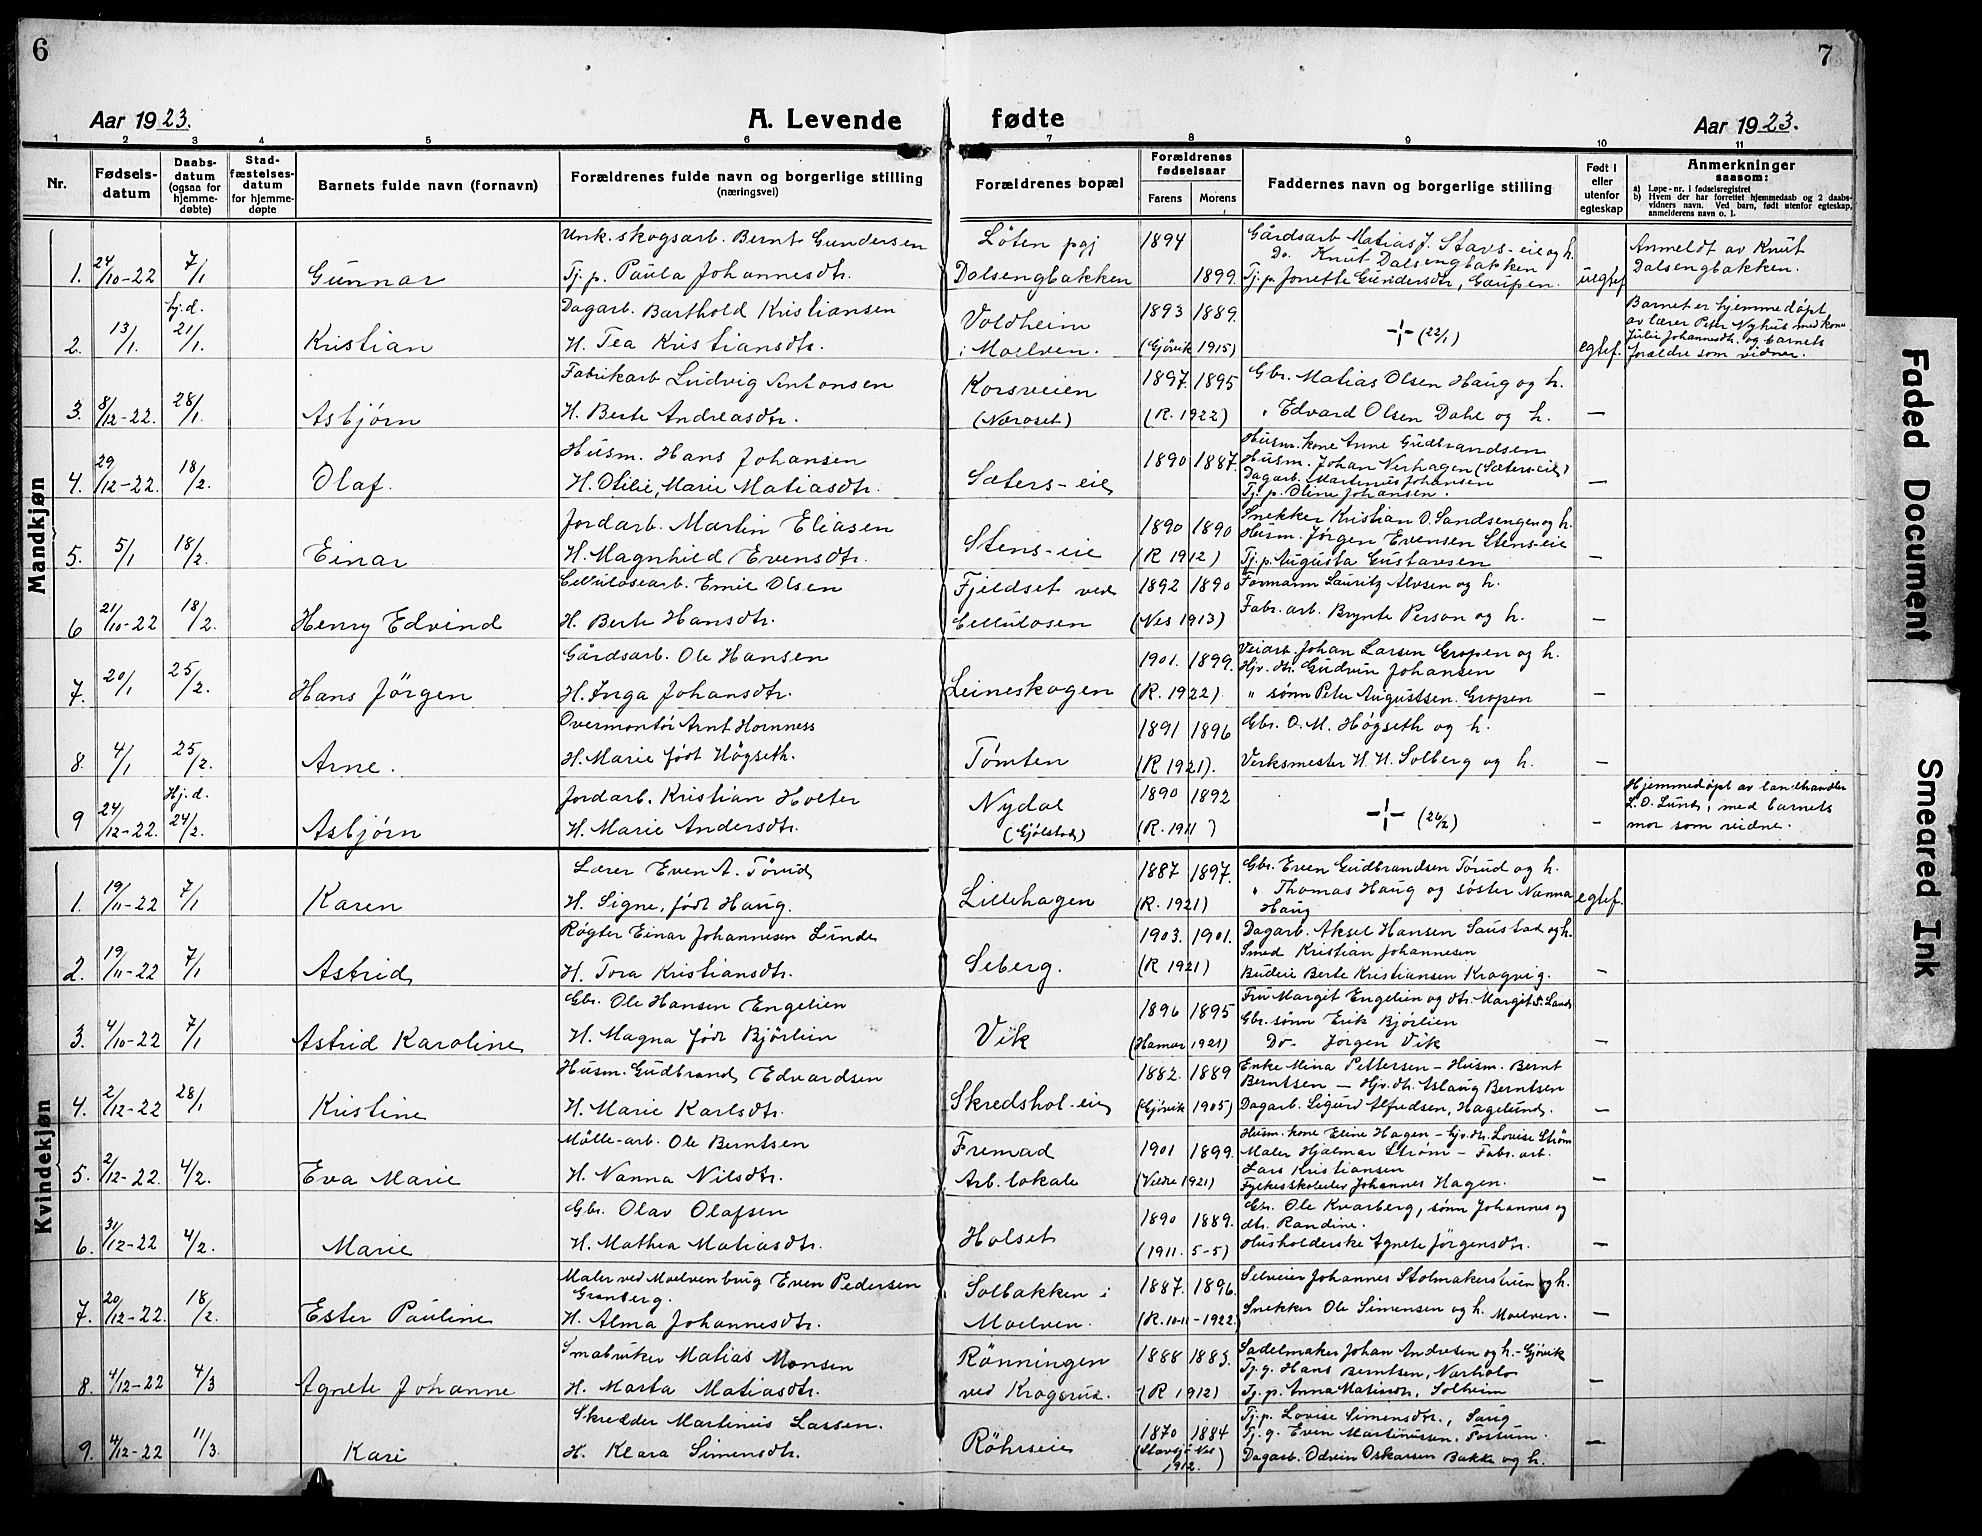 6
7
Aar 1923.
A. Levende fødte
Aar 1923.
1 2 3 4 5 6 7 8 9 10 11
Nr.
Fødsels-
datum
Daabs-
datum
(ogsaa for
hjemme-
døbte)
Stad-
fæstelses-
datum
for hjemme-
døpte
Barnets fulde navn (fornavn)
Forældrenes fulde navn og borgerlige stilling
(næringsvei)
Forældrenes bopæl
Forældrenes
fødselsaar
Farens
Morens
Faddernes navn og borgerlige stilling
Født i
eller
utenfor
egteskap
Anmerkninger
saasom:
a) Løpe-nr. i fødselsregistret
b) Hvem der har forrettet hjemmedaab og 2 daabs-
vidners navn. Ved barn, født utenfor egteskap,
anmelderens navn o. l.
Mandkjøn
1. 24/10-22 7/1 Gunnar
Unk. skogsarb. Bernt Gundersen
Tj. p. Paula Johannesdtr.
Løten pgj
Dalsengbakken
1894 1899
Gårdsarb. Matias J. Stavs-eie og h.
Do. Knut Dalsengbakken
Tj. p. Jonette Gundersdtr, Gaupen.
uegtef
Anmeldt av Knut
Dalsengbakken.
2. 13/1. hj.d. 21/1. Kristian
Dagarb. Barthold Kristiansen
H. Tea Kristiansdtr.
Voldheim
i Moelven.
1893 1889.
(Gjøvik 1915)
-:- (22/1)
egtef.
Barnet er hjemmedøpt
av lærer Peter Nyhus med kone
Julie Johannesdtr. og barnets
forældre som vidner.
3. 8/12-22. 28/1. Asbjørn
Fabrikarb Ludvig Antonsen
H. Berte Andreasdtr.
Korsveien
(Næroset)
1897. 1895
(R. 1922)
Gbr. Matias Olsen Haug og h.
" Edvard Olsen Dahl og h.
—
4. 29/12-22. 18/2. Olaf.
Husm. Hans Johansen
H. Otilie Marie Matiasdtr.
Sæters-eie
1890 1887.
Husm. kone Anne Gudbrandsen
Husm. Johan Nerhagen (Sæters-eie)
Dagarb. Martinus Johansen
Tj. p. Oline Johansen.
—
5. 5/1 18/2. Einar
Jordarb. Martin Eliasen
H. Magnhild Evensdtr.
Stens-eie
1890 1890
(R 1912)
Snekker Kristian O. Sandsengen og h.
Husm. Jørgen Evensen Stens-eie
Tj. p. Augusta Gustavsen
—
6 21/10-22 18/2. Henry Edvind
Cellulosearb. Emil Olsen
H. Berte Hansdtr.
Fjeldset ved
Cellulosen
1892 1890
(Nes 1913)
Formann Lauritz Alvsen og h.
Fabr. arb. Brynte Person og h.
—
7. 20/1 25/2. Hans Jörgen
Gårdsarb. Ole Hansen
H. Inga Johansdtr.
Leineskogen
1901. 1899.
(R. 1922)
Veiarb. Johan Larsen Gropen og h.
Hjv. dtr. Gudrun Johansen
" sønn Peter Augustsen Gropen
—
8. 4/1 25/2. Arne.
Overmontör Arnt Hornness
H. Marie født Högseth.
Tomten
1891 1896
(R 1921).
Gbr. O. M. Høgseth og h.
Verksmester H. H. Solberg og h.
—
9 24/12-22. Hj.d. 24/2. Asbjørn
Jordarb. Kristian Holter
H. Marie Andersdtr.
Nydal
(Gjølstad)
1890 1892
(R. 1911)
-:- (26/2)
-
Hjemmedøpt av landhandler
L. O. Lund, med barnets
mor som vidne.
Kvindekjøn
1. 19/11-22 7/1 Karen
Lærer Even A. Tørud
H. Signe, født Haug.
Lillehagen
1887 1897.
(R. 1921)
Gbr. Even Gudbrandsen Tørud og h.
" Thomas Haug og søster Nanna
Haug
egtef.
2. 19/11-22 7/1 Astrid
Røgter Einar Johannesen Lunde
H. Tora Kristiansdtr.
Seberg.
1903. 1901.
(R 1921)
Dagarb. Aksel Hansen Saustad og h.
Smed Kristian Johannesen
Budeie Berte Kristiansen Kragvig.
—
3. 4/10-22 7/1 Astrid Karoline
Gbr. Ole Hansen Engelien
H. Magna født Bjørlien
Vik
1896 1895
(Hamar 1921)
Fru Margit Engelien og dtr. Margit S. Land
Gbr. sønn Erik Bjørlien
Do- Jørgen Vik
—
4. 2/12-22 28/1 Kristine
Husm. Gudbrand Edvardsen
H. Marie Karlsdtr.
Skredshol-eie
1882. 1889
(Gjøvik 1905)
Enke Mina Pettersen - Husm. Bernt
Berntsen - Hjv. dtr. Aslaug Berntsen
Dagarb. Sigurd Alfredsen, Hagelund.
—
5. 2/12-22. 4/2. Eva Marie
Mölle-arb. Ole Berntsen
H. Nanna Nilsdtr.
Fremad
Arb. lokale
1901 1899.
(Veldre 1921)
Husm. kone Eline Hagen - hjv. dtr. Lovise Strøm
Maler Hjalmar Strøm - Fabr. arb.
Lars Kristiansen
Fylkesskoleelev Johannes Hagen.
—
6. 31/12-22 4/2. Marie
Gbr. Olav Olafsen
H. Mathea Matiasdtr.
Holset
1890 1889.
(1911. 5-5)
Gbr. Ole Kvarberg, sønn Johannes og
dtr. Randine.
Husholderske Agnete Jørgensdtr.
—
7. 20/12-22. 18/2. Ester Pauline
Maler ved Moelven brug Even Pedersen
Granberg.
H. Alma Johannesdtr.
Solbakken i
Moelven.
1887. 1896.
(R. 10-11-1922)
Selveier Johannes Stolmakerstuen og h.
Snekker Ole Simensen og h. Moelven.
—
8. 4/12-22 4/3 Agnete Johanne
Småbruker Matias Monsen
H. Marta Matiasdtr.
Rönningen
ved Kragsrud.
1888 1883.
(R 1912)
Sadelmaker Johan Andresen og h.- Gjøvik
Tj. g. Hans Berntsen, Narholo
Tj. p. Anna Matisson, Solheim
—
9. 4/12-22 11/3. Kari
Skredder Martinus Larsen.
H. Klara Simensdtr.
Röhrseie
1870 1884
(Stavsj. Nes
1912.)
Tj. p. Lovise Simensdtr., Saug
Tj. g. Even Martinussen, Fossum.
Dagarb. Odvin Oskarsen Bakke og h.
—
Faded Document
Smeared Ink